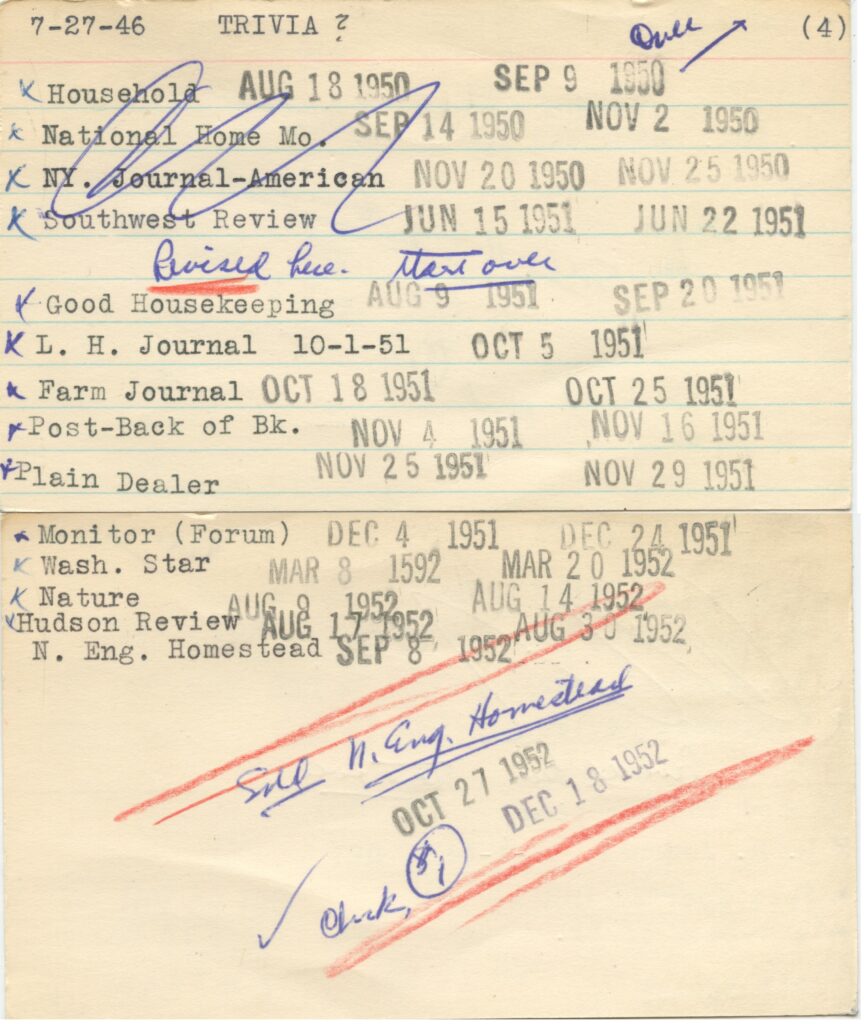 7-27-46 TRIVIA ? Over (4)
x Household AUG 18 1950 SEP 9 1950
x National Home Mo. SEP 14 1950 NOV 2 1950
x NY. Journal-American NOV 20 1950 NOV 25 1950
x Southwest Review JUN 15 1951 JUN 22 1951
Revised here. Start over
x Good Housekeeping AUG 9 1951 SEP 20 1951
x L. H. Journal 10-1-51 OCT 5 1951
x Farm Journal OCT 18 1951 OCT 25 1951
x Post-Back of Bk. NOV 4 1951 NOV 16 1951
x Plain Dealer NOV 25 1951 NOV 29 1951
x Monitor (Forum) DEC 4 1951 DEC 24 1951
x Wash. Star MAR 8 1592 MAR 20 1952
x Nature AUG 9 1952 AUG 14 1952
x Hudson Review AUG 17 1952 AUG 30 1952
N. Eng. Homestead SEP 8 1952
Sold N. Eng. Homestead
OCT 27 1952
DEC 18 1952
✓ Check, $1